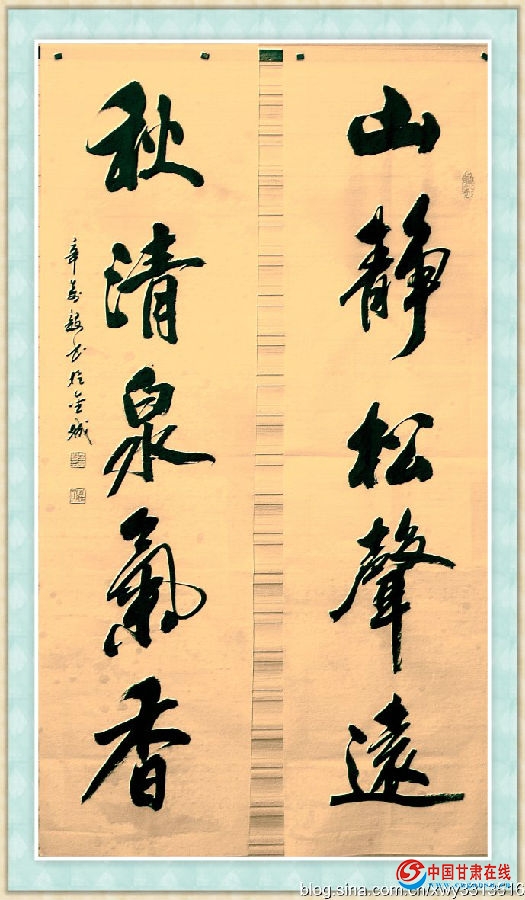 山靜松聲遠
秋清泉氣香
书於金城
中国甘肃在线
blog.sina.com.cn/xwy3313516